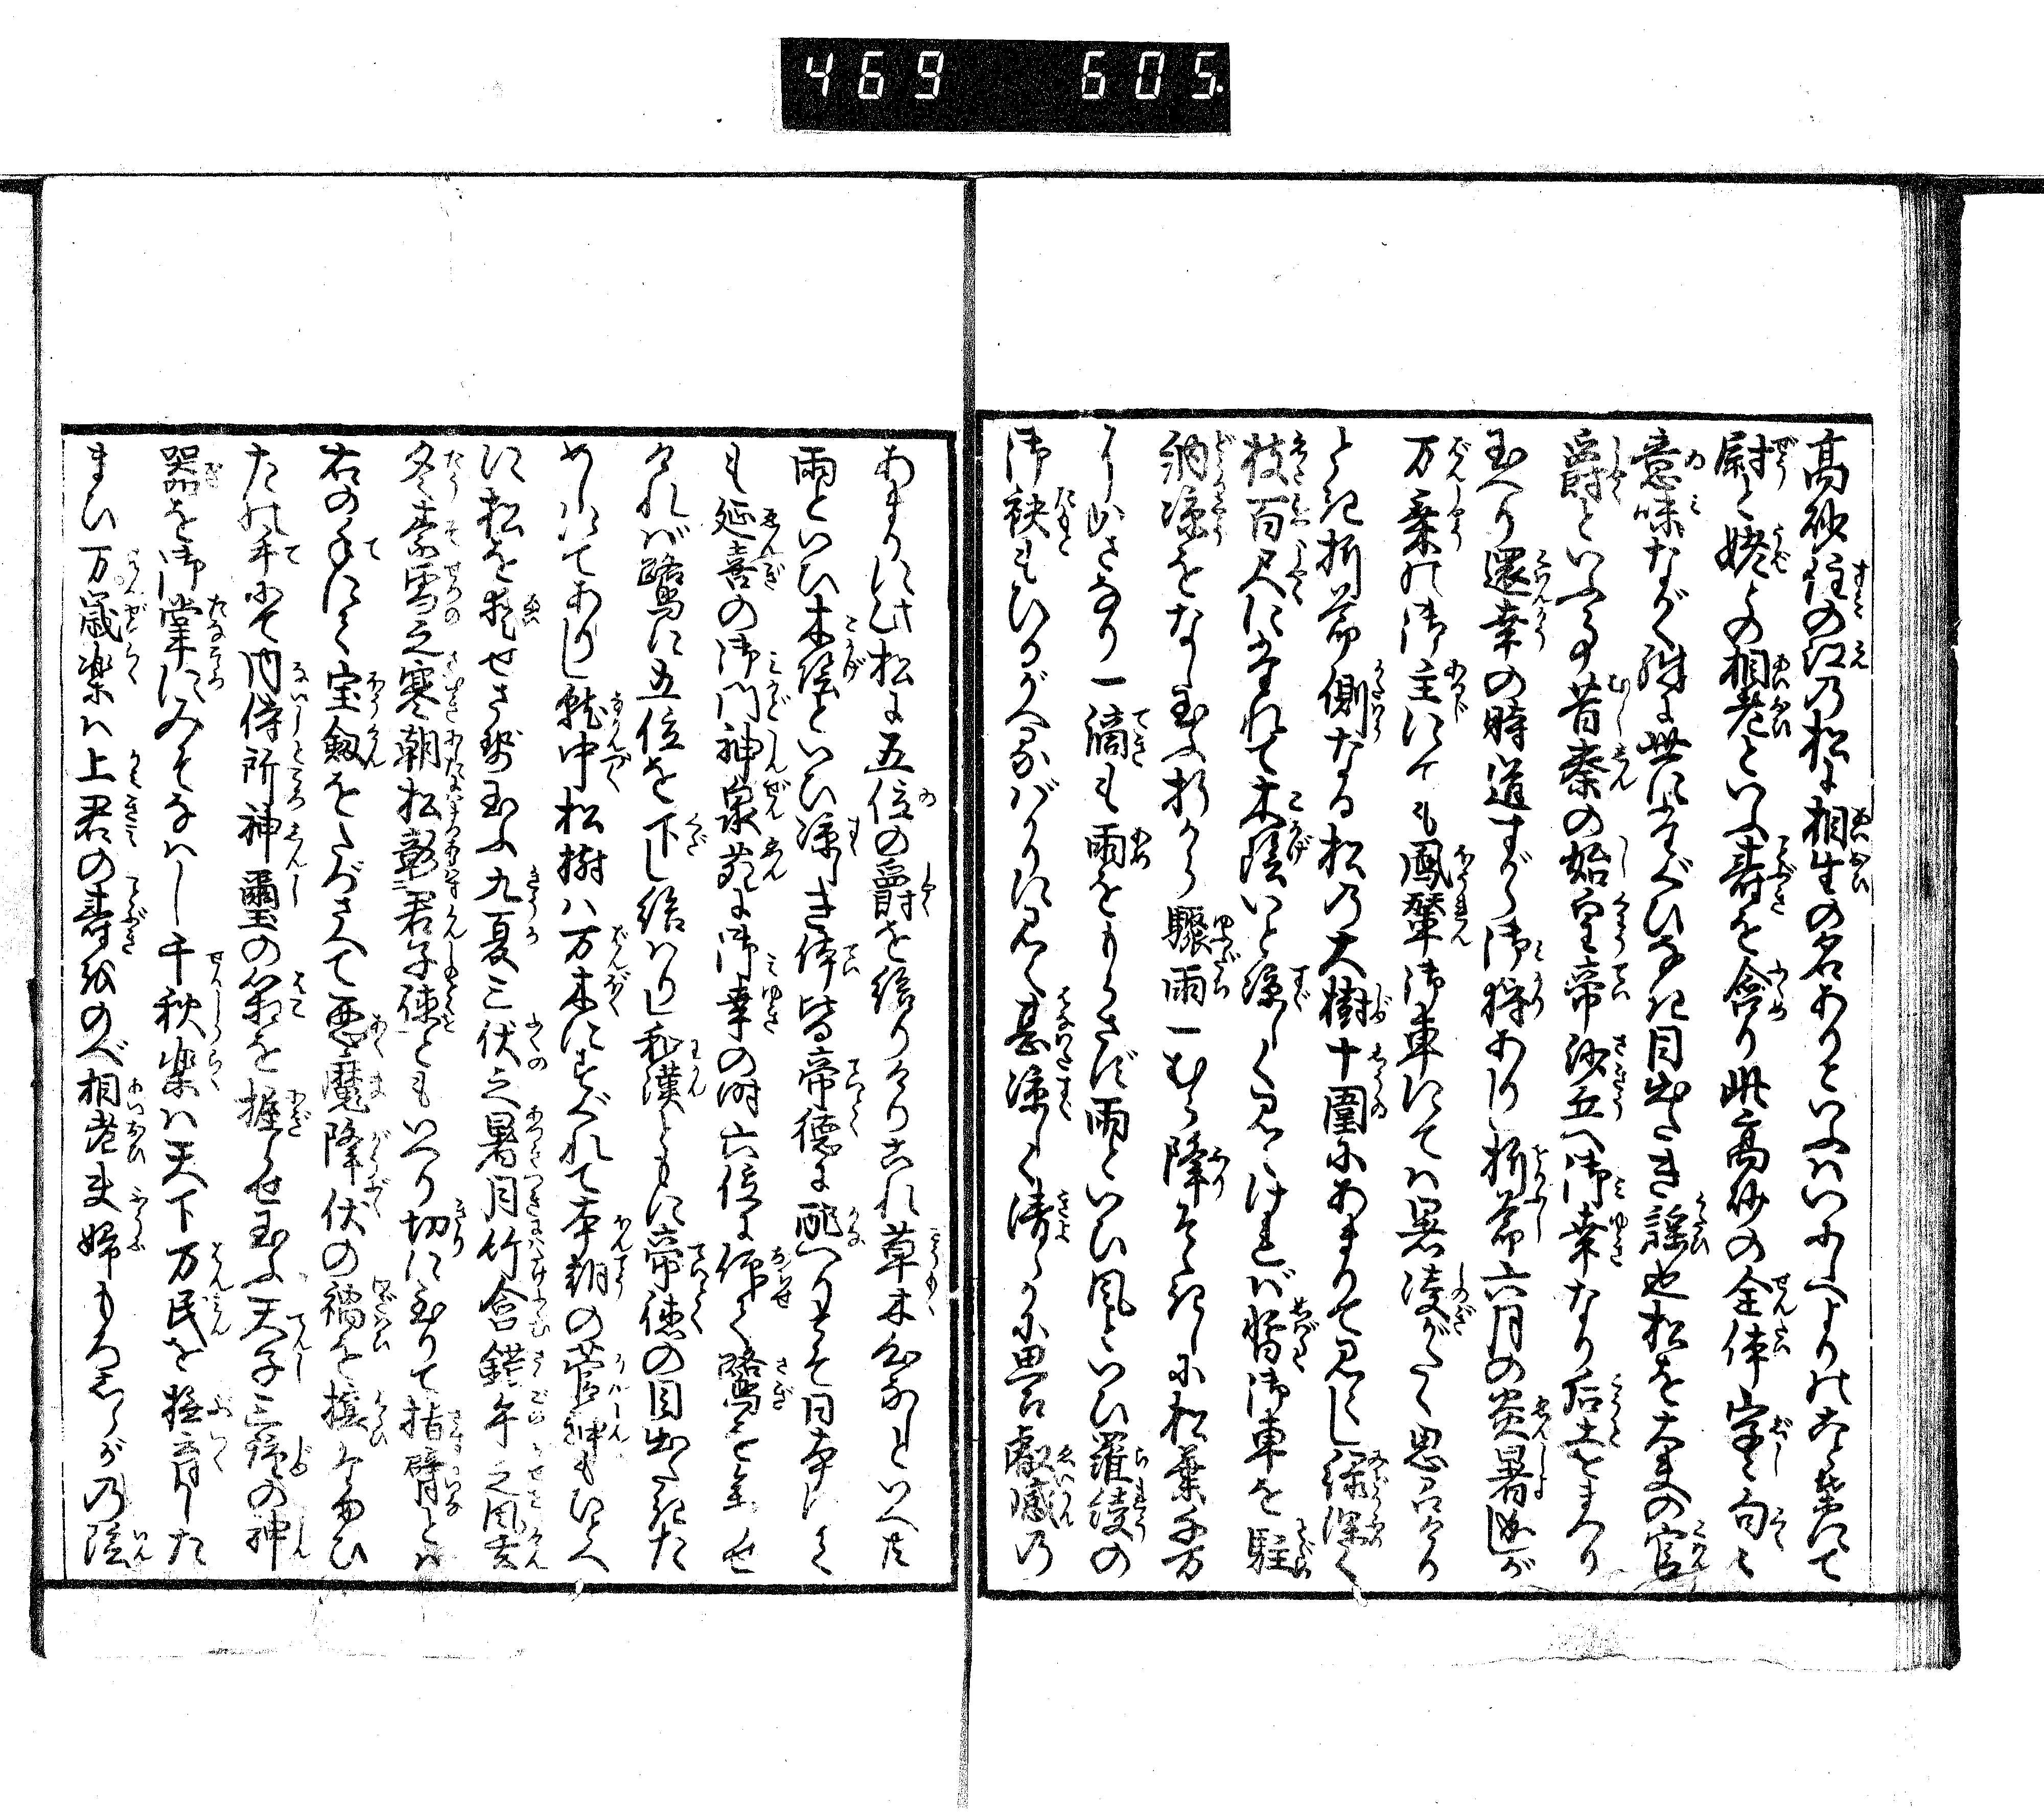 469 605.
高砂住の江乃松に相生の名ありといふハいにしへよりのことにて
尉と姥との相老といふ寿を含り此高砂の全体室句こ
意味ながく殊に世にたぐひなき目出たき謡也松を大夫の官
爵といふ事昔秦の始皇帝沙丘へ御幸なり后土をまつり
玉へり還幸の時道すがら御狩あり折節六月の炎暑
万乗の御主にても鳳輦御車にてハ暑凌がたく思召けり
とき折節側なる松乃大樹十囲にあまりて見へし緑深く
枝百尺にたれて木陰いと涼しく見へけれバ暫御車を駐
納涼をなし玉ふ折から驟雨一むら降そゝぎしに松葉千万
かさなり一滴も雨をもらさず雨といひ風といひ羅綾の
御袂もひるがへるバかりに見へ甚涼しく清らかに思召叡感乃
あまりに此松に五位の爵を給りけりされ草木心なしといへ共
雨といひ木陰といひ涼しき体皆帝徳に配へりさて日本にて
も延喜の御門神泉苑に御幸の時六位に仰て鷺をとらせ
けれバ鷺に五位を下し給ハりし和漢ともに帝徳の目出たきた
めしにてありし就中松樹ハ万木にすぐれて本朝の菅神もひとへ
に松を愛せさせ玉ふ九夏三伏之暑月竹含錯午之風玄
冬素雪之寒朝松彰君子徳ともいへり切に至りて指臂とハ
右の手にて宝剣をたづさへて悪魔降伏の禍を攘ケ給ひ
左の手にて内侍所神璽の筥を握らせ玉ふ天子三種の神
器を御掌にみそなハし千秋楽ハ天下万民を撫育した
まい万歳楽ハ上君の寿をのべ相老夫婦もろしらが乃陰